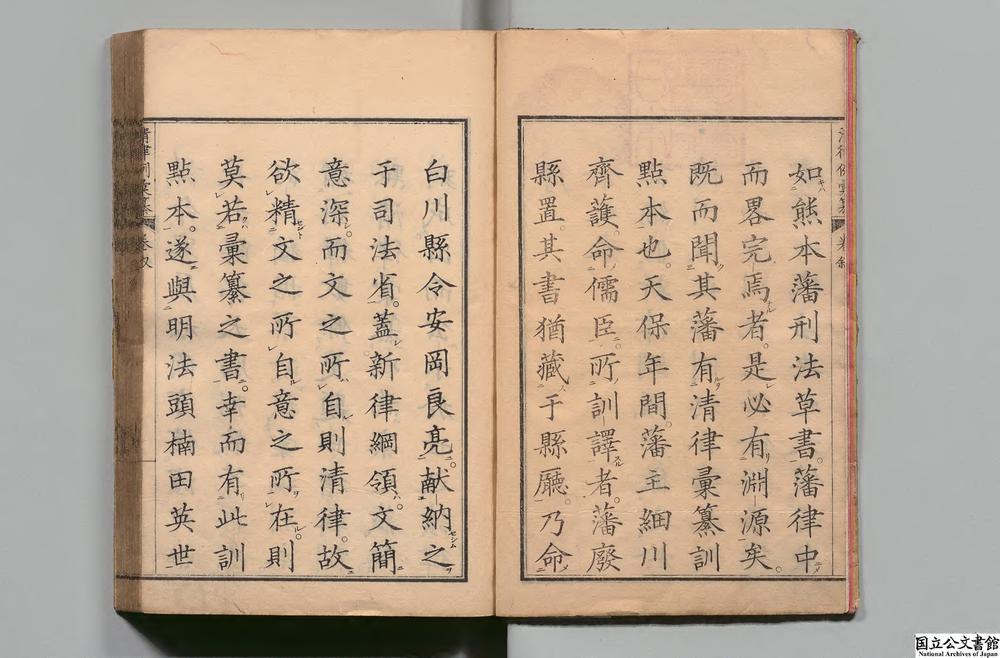 如熊本藩刑法草書。藩律中
而畧完焉者。是必有淵源矣。
既而聞其藩有清律彙纂訓
點本也。天保年間。藩主細川
齊護。命儒臣。所訓譯者。藩廢
縣置。其書猶藏于縣廳。乃命
白川縣令安岡良亮。献納之
于司法省。蓋新律綱領。文簡
意深。而文之所自則清律。故
欲精文之所自意之所在則
莫若彙纂之書。幸而有此訓
點本。遂與明法頭楠田英世
国立公文書館
National Archives of Japan